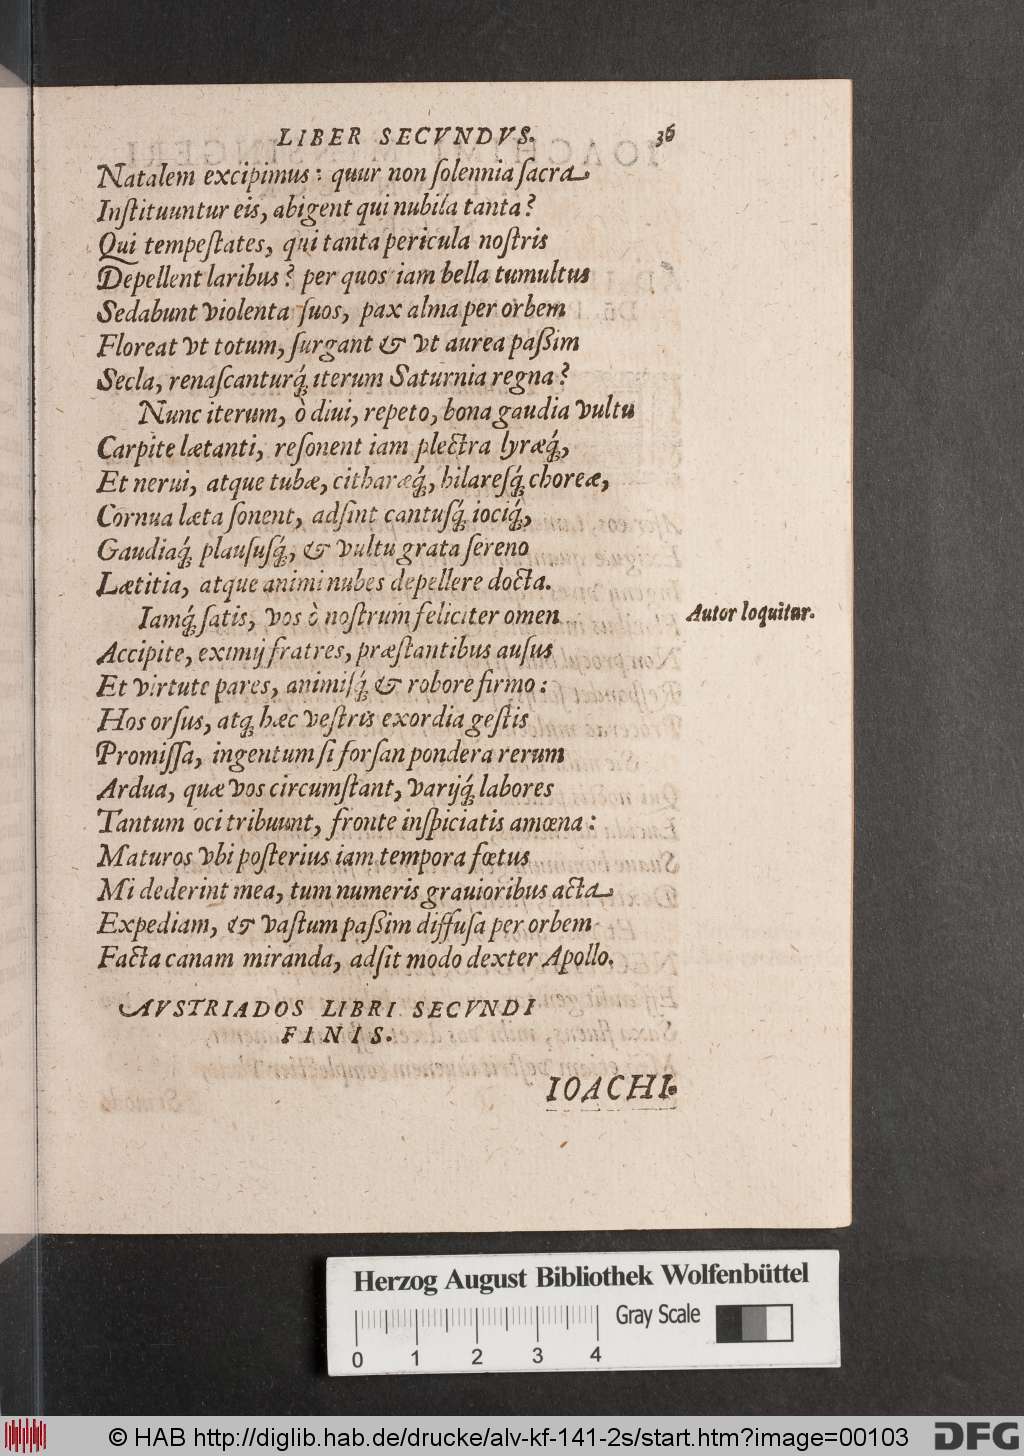 LIBER SECVNDVS. 36
Natalem excipimus: quur non ſolennia ſacra
Inſtituuntur eis, abigent qui nubila tanta?
Qui tempeſtates, qui tanta pericula noſtris
Depellent laribus? per quos iam bella tumultus
Sedabunt violenta ſuos, pax alma per orbem
Floreat vt totum, ſurgant & vt aurea paßim
Secla, renaſcanturq́ꝫ iterum Saturnia regna?
Nunc iterum, ò diui, repeto, bona gaudia vultu
Carpite lætanti, reſonent iam plectra lyræq́ꝫ,
Et nerui, atque tubæ, citharæq́ꝫ, hilareſq́ꝫ choreæ,
Cornua læta ſonent, adſint cantuſq́ꝫ iociq́ꝫ,
Gaudiaq́ꝫ plauſuſq́ꝫ, & vultu grata ſereno
Lætitia, atque animi nubes depellere docta.
Iamq́ꝫ ſatis, vos ò noſtrum feliciter omen
Autor loquitur.
Accipite, eximij fratres, præſtantibus auſus
Et virtute pares, animiſq́ꝫ & robore firmo:
Hos orſus, atqꝫ hæc veſtris exordia geſtis
Promiſſa, ingentum ſi forſan pondera rerum
Ardua, quæ vos circumſtant, varijq́ꝫ labores
Tantum oci tribuunt, fronte inſpiciatis amœna:
Maturos vbi poſterius iam tempora fœtus
Mi dederint mea, tum numeris grauioribus acta
Expediam, & vaſtum paßim diffuſa per orbem
Facta canam miranda, adſit modo dexter Apollo.
AVSTRIADOS LIBRI SECVNDI
FINIS.
IOACHI.
Herzog August Bibliothek Wolfenbüttel
Gray Scale
0 1 2 3 4
© HAB http://diglib.hab.de/drucke/alv-kf-141-2s/start.htm?image=00103
DFG